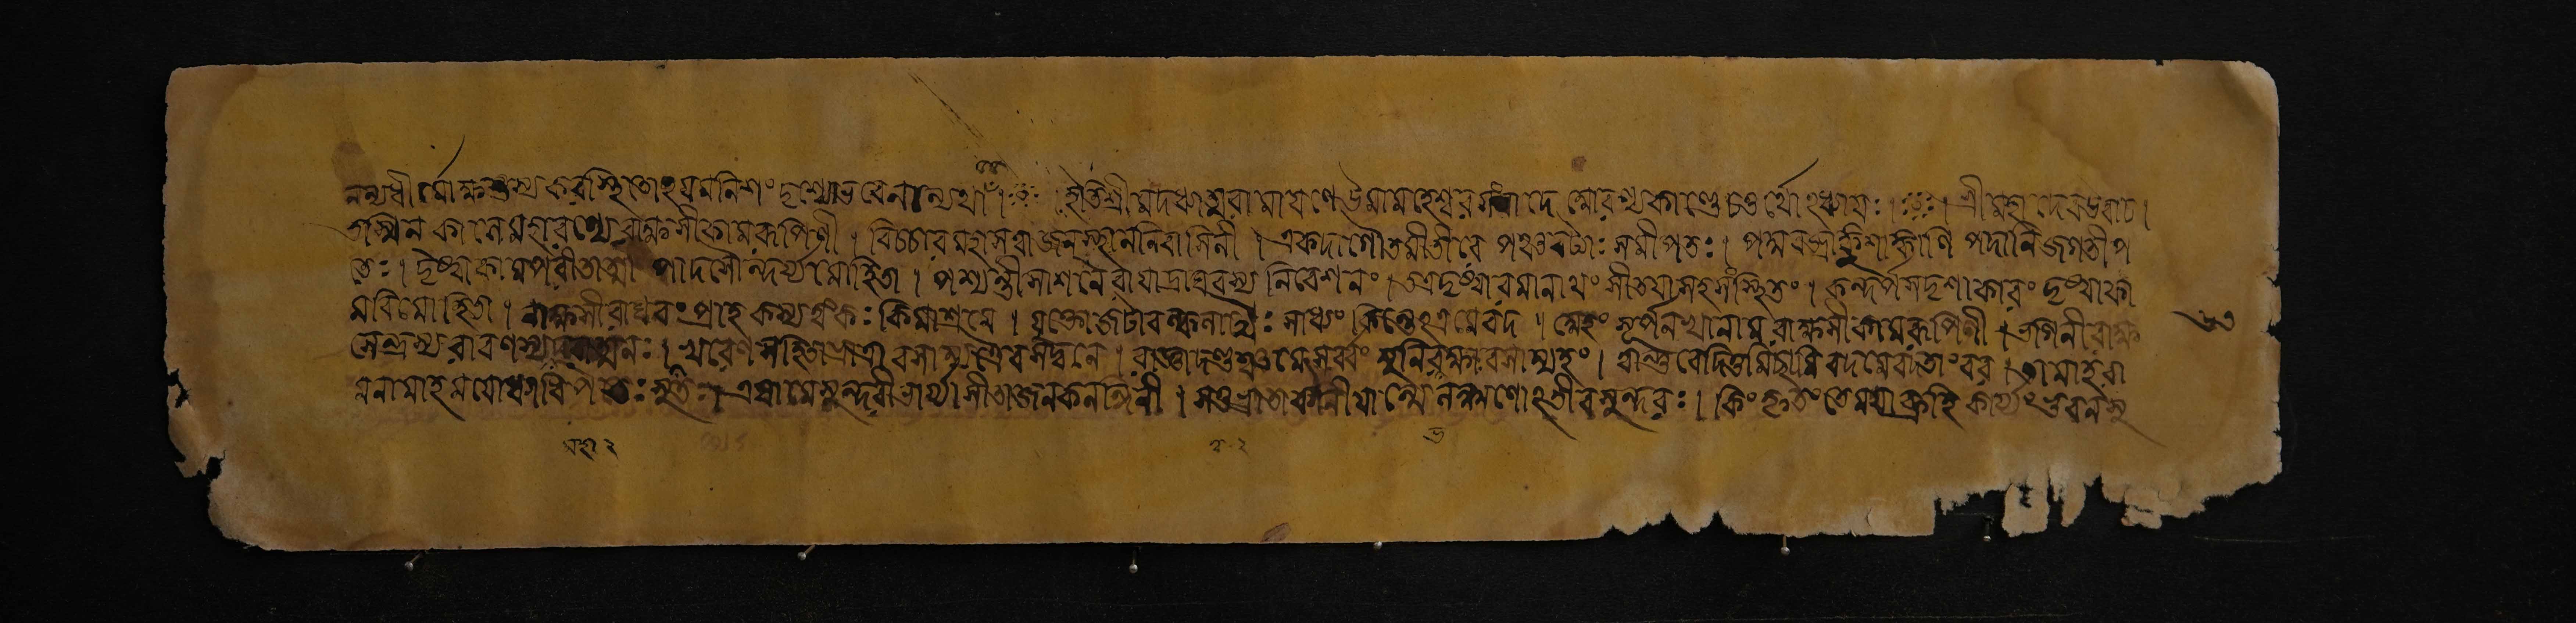 নন্যধীর্মোক্ষস্তস্য করস্থিতোঽয়মনিশং দৃশ্যোভবেনান্যথা । ইতি শ্রীমদধ্যাত্মরামায়ণে উমামহেশ্বরসংবাদে আরণ্যকাণ্ডে চতুর্থোঽধ্যায়ঃ । শ্রীমহাদেবউবাচ ।
তস্মিন কালে মহারণ্যে রাক্ষসী কামরূপিণী । বিচচার মহাসত্বা জনস্থাননিবাসিনী । একদা গৌতমীতীরে পঞ্চবট্যাঃ সমীপতঃ । পদ্মবজ্রাঙ্কুশাঙ্কাণি পদানি জগতীপ
তেঃ । দৃষ্ট্বা কামপরীতাত্মা পাদসৌন্দর্য্যমোহিতা । পশ্যন্তী সা শনৈরায়াদ্রাঘবস্য নিবেশনং । তত্র দৃষ্ট্বা রমানাথং সীতয়া সহ সংস্থিতং । কন্দর্পসদৃশাকারং দৃষ্ট্বা কা
মবিমোহিতা । রাক্ষসী রাঘবং প্রাহ কস্য ত্বং কঃ কিমাশ্রমে । যুক্তো জটাবল্কলাদ্যৈঃ সাধ্যং কিন্তেঽত্র মে বদ । অহং সূর্পনখা নাম রাক্ষসী কামরূপিণী । ভগিনী রাক্ষ
সেন্দ্রস্য রাবণস্য মহাত্মনঃ । খরেণ সহিতা ভ্রাত্রা বসাম্যত্রৈব সদ্বনে । রাজ্ঞা দত্তঞ্চ মে সর্ব্বং মুনিভক্ষা বসাম্যহং । ত্বান্তু বেদিতুমিচ্ছামি বদ মে বদতাং বর । তামাহ রা
মনামাহমযোধ্যাধিপতেঃ সুতঃ । এষা মে সুন্দরী ভার্য্যা সীতা জনকনন্দিনী । স তু ভ্রাতা কনীয়ান্মে লক্ষ্মণোঽতীব সুন্দরঃ । কিং কৃত্যং তে ময়া ব্রূহি কার্য্যং ভুবনসু